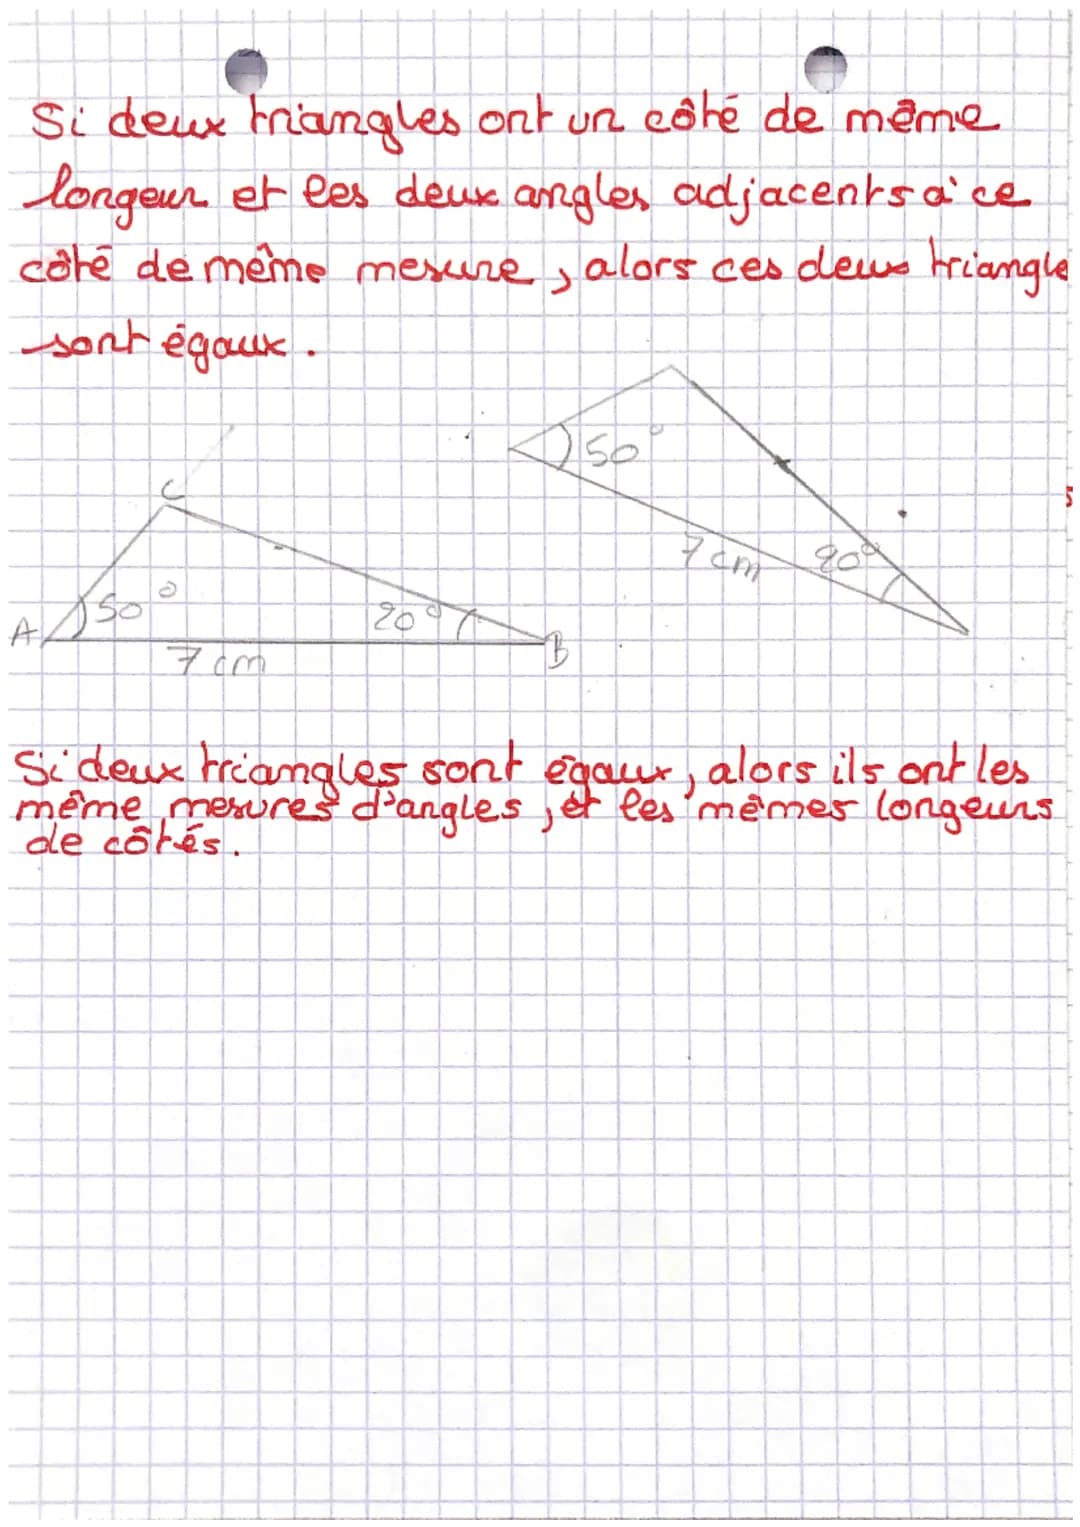 Si deux triangles ont un côté de même
longeur et les deux angles adjacents à ce
côté de même mesure, alors ces deux triangle
sont égaux.
50°
C
7 cm
20°
50°
20°
A
B
7 cm
Si deux triangles sont égaux, alors ils ont les
même mesures d'angles, et les mêmes longeurs
de côtés.